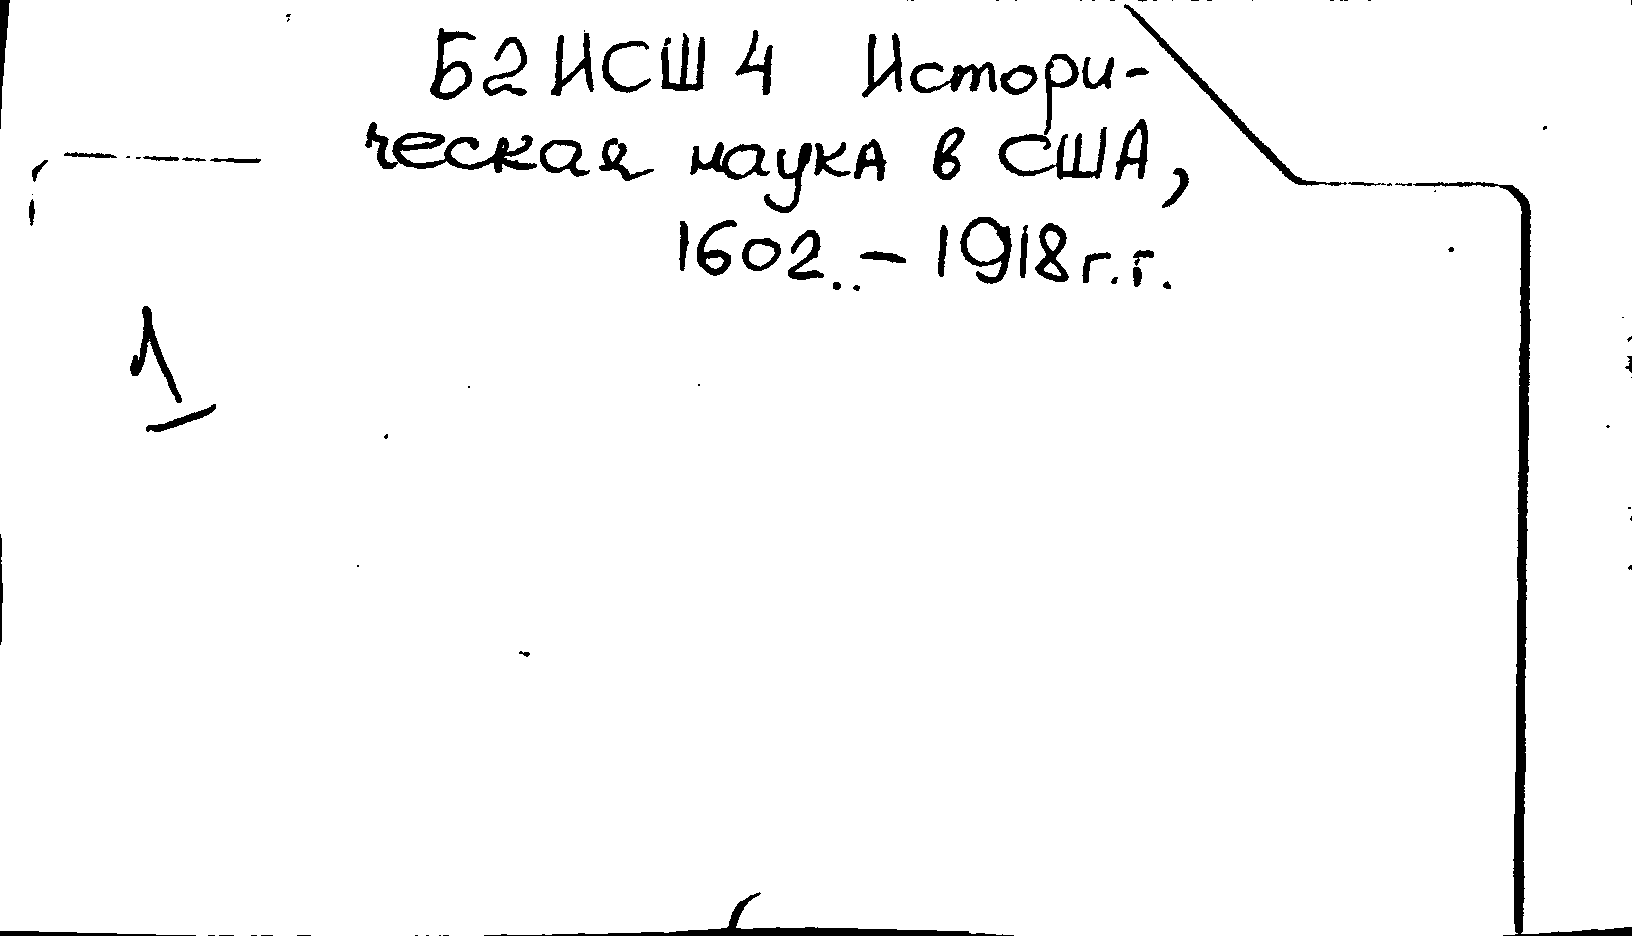 Б2ИСШ4 Истори-
ческая наука в США,
1602..–1918г.г.
1